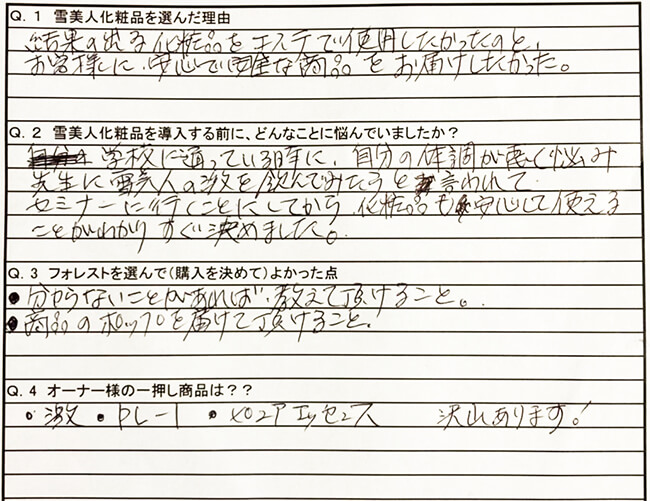 Q. 1 雪美人化粧品を選んだ理由
結果の出る化粧品をエステで使用したかったのと、
お客様に、安心で安全な商品をお届けしたかった。
Q. 2 雪美人化粧品を導入する前に、どんなことに悩んでいましたか？
学校に通っている時に、自分の体調が悪く悩み
先生に雪美人の激を飲んでみたらと言われて
セミナーに行くことにしてから、化粧品も安心して使える
ことがわかりすぐに決めました。
Q. 3 フォレストを選んで(購入を決めて)よかった点
● 分からないことがあれば、教えて頂けること。
● 商品のポップを届けて頂けること。
Q. 4 オーナー様の一押し商品は？？
• 激 • PL-1 • エッセンス 沢山あります!